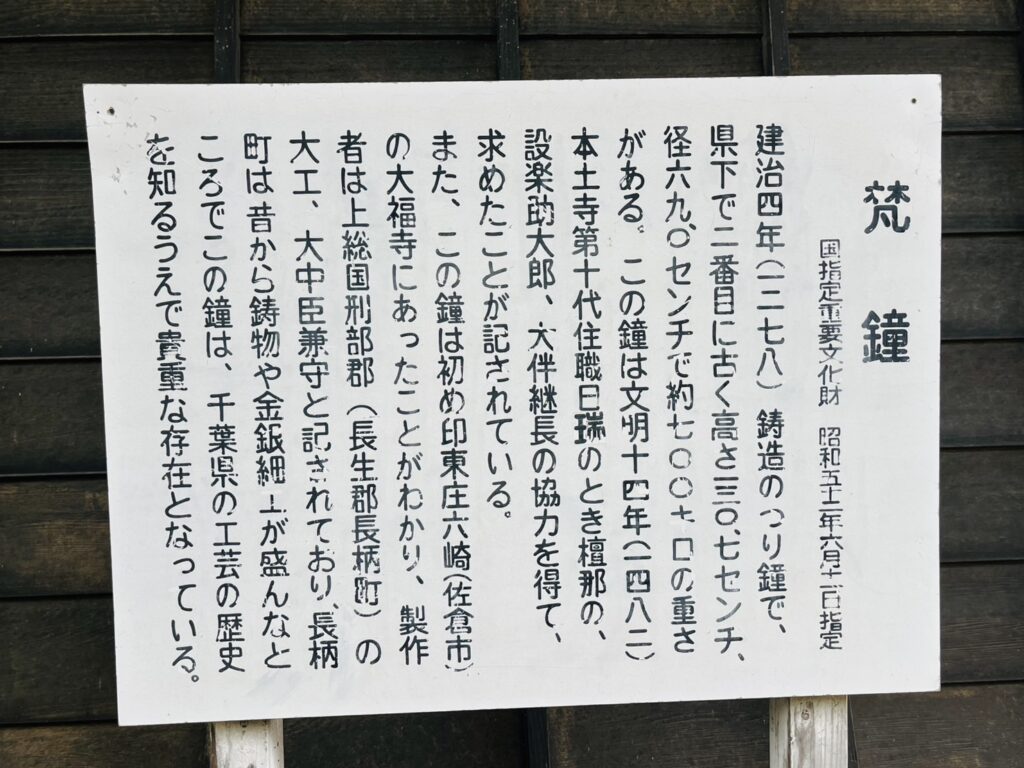 梵鐘
国指定重要文化財 昭和五十二年六月十一日指定
建治四年(一二七八)鋳造のつり鐘で、
県下で二番目に古く高さ一三〇.七センチ、
径六九.〇センチで約七〇〇キロの重さ
がある。この鐘は文明十四年(一四八二)
本土寺第十代住職日瑞のとき檀那の、
設楽助大郎、大伴継長の協力を得て、
求めたことが記されている。
また、この鐘は初め印東庄六崎(佐倉市)
の大福寺にあったことがわかり、製作
者は上総国刑部郡(長生郡長柄町)の
大工、大中臣兼守と記されており、長柄
町は昔から鋳物や金鈑細工が盛んなと
ころでこの鐘は、千葉県の工芸の歴史
を知るうえで貴重な存在となっている。